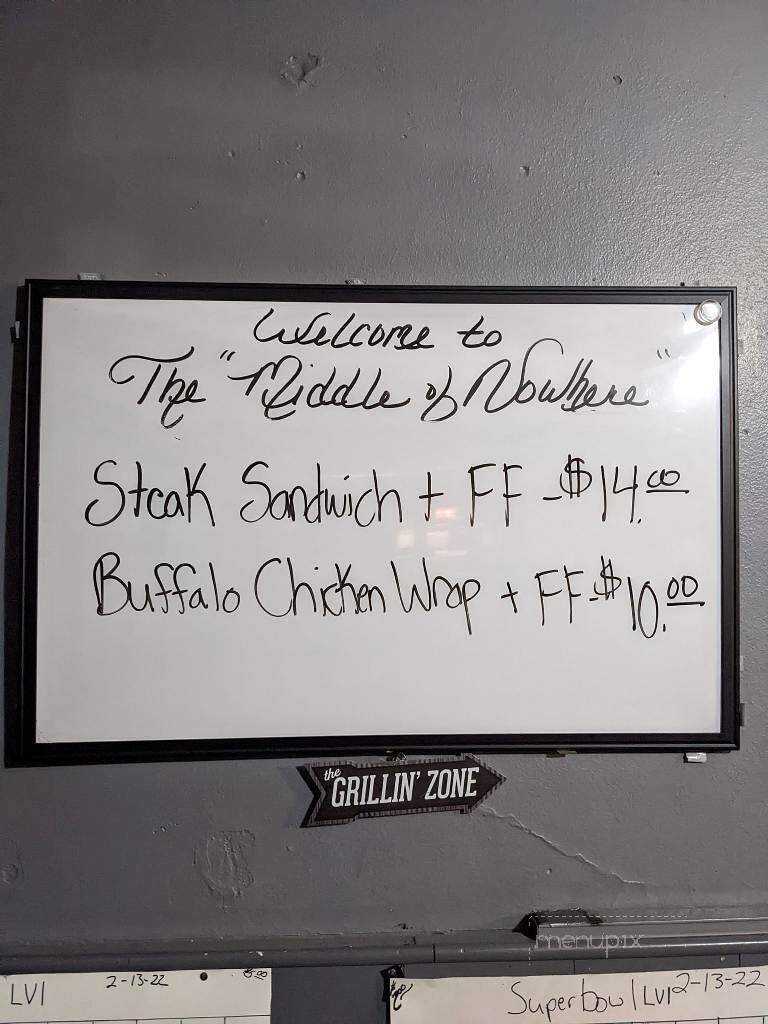 Welcome to
The "Middle of Nowhere"
Steak Sandwich + FF - $14.00
Buffalo Chicken Wrap + FF - $10.00
the
GRILLIN' ZONE
menupix
LVI 2-13-22
Superbowl LVI 2-13-22